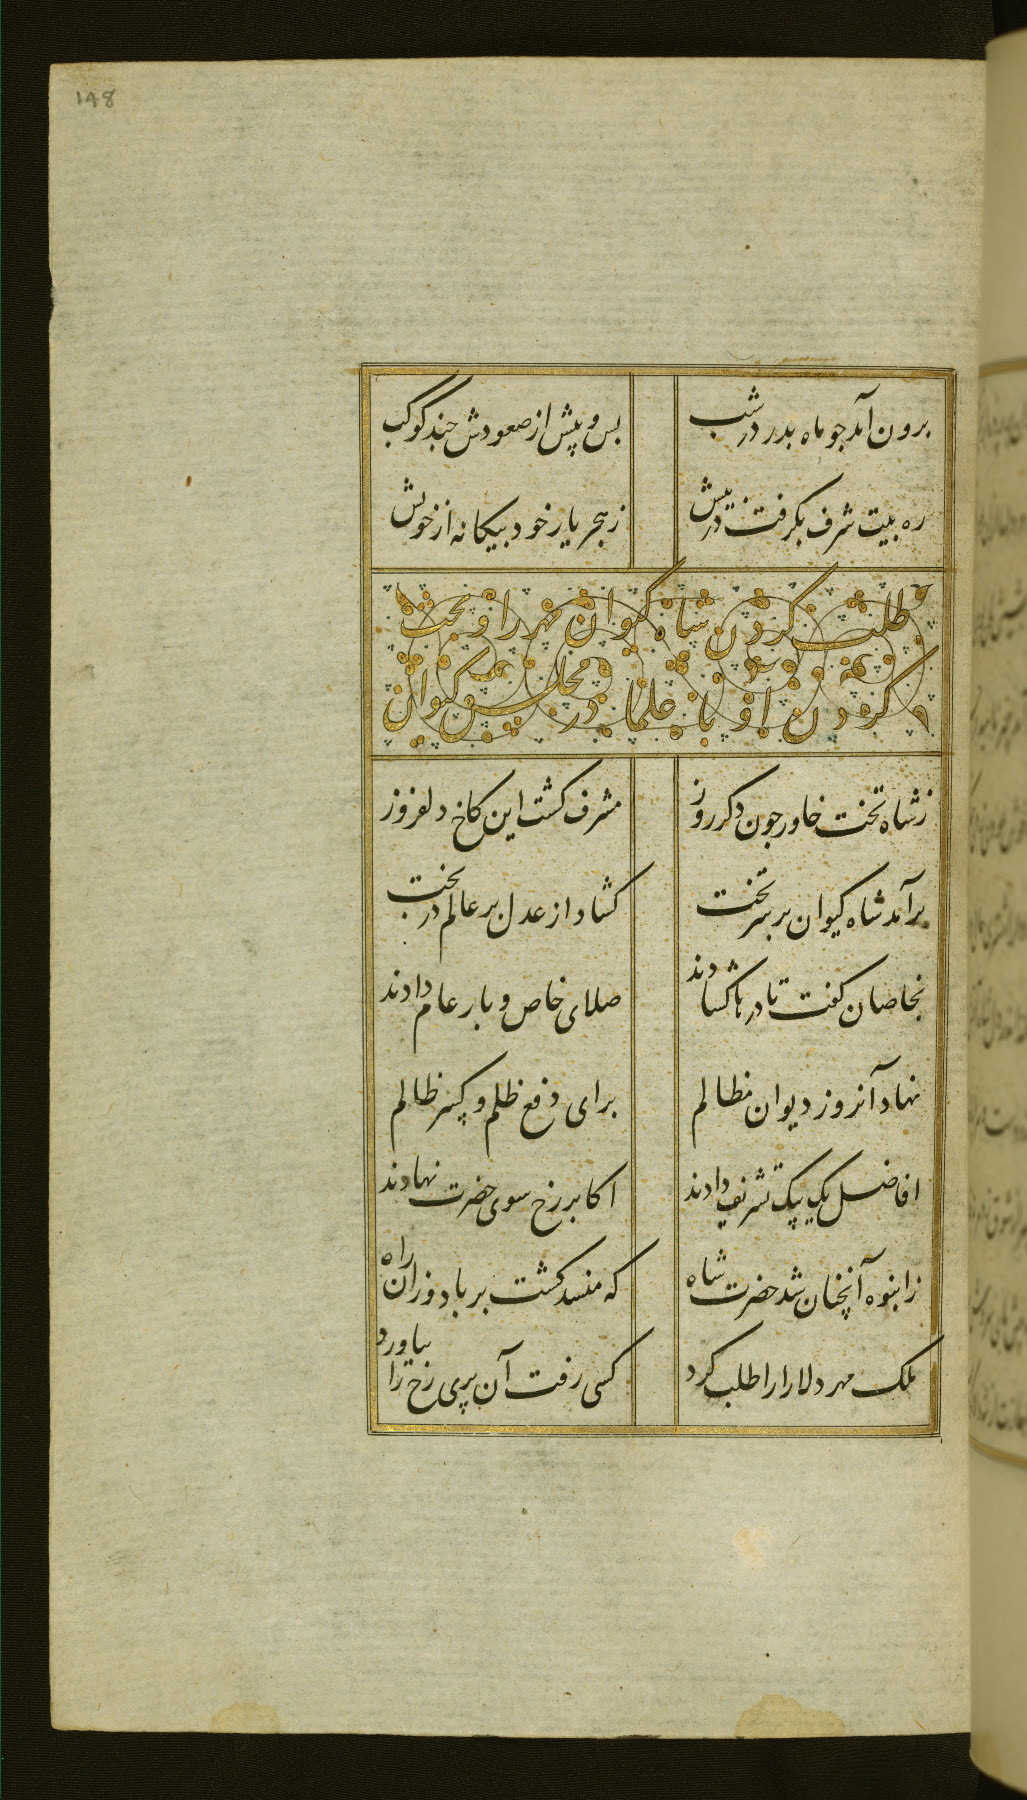 148
برون آمد جو ماه بدر در شب بس و پیش از صعودش جند کوکب
ره بیت شرف بکرفت در پیش ز هجر یار خود بیکانه از خویش
طلب کردن شاه کیوان مهر را و بحث
کردن او با علما در مجلس کیوان
ز شاه تخت خاور جون دکر روز مشرف کشت این کاخ دلفروز
برآمد شاه کیوان بر سر تخت کشاد از عدل بر عالم در بخت
بخاصان کفت تا درها کشادند صلای خاص و بار عام دادند
نهاد آنروز دیوان مظالم برای دفع ظلم و کسر ظالم
افاضل یک بیک تشریف دادند اکابر رخ سوی حضرت نهادند
ز انبوه آنچنان شد حضرت شاه که منسد کشت بر باد وزان راه
ملک مهر دلارا را طلب کرد کسی رفت آن پری رخ را بیاورد